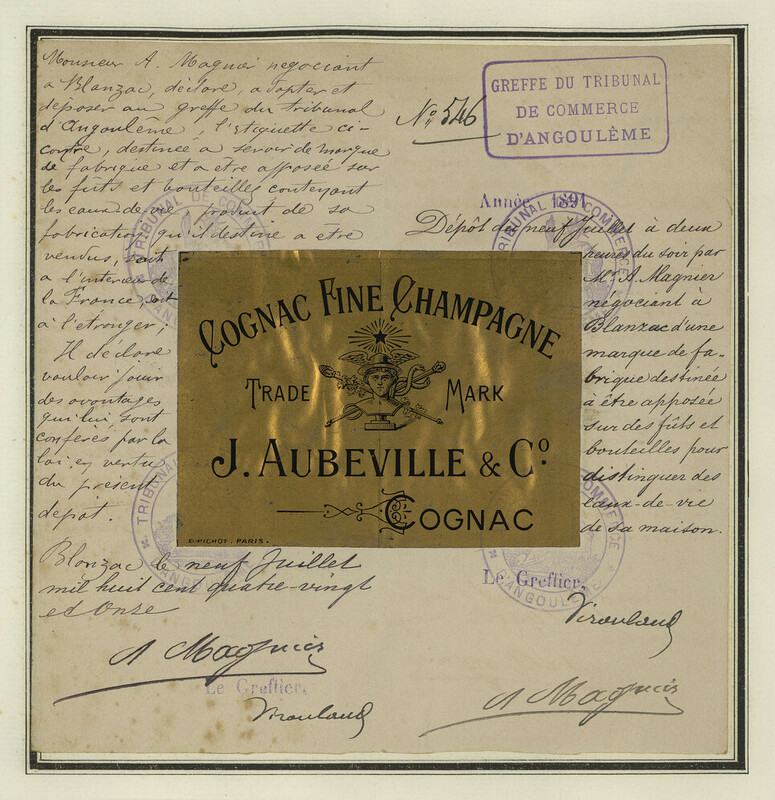 Monsieur A. Magnier negociant
a Blanzac, déclare, adopter et
deposer au greffe du tribunal
d'Angoulême, l'etiquette ci-
contre, destinée a servir de marque
de fabrique et a etre apposée sur
les fûts et bouteilles contenant
les eaux de vie produit de sa
fabrication qu'il destine a etre
vendus, soit
a l'interieur de
la France, soit
à l'étranger;
Il déclare
vouloir jouir
des avantages
qui lui sont
conférés par la
loi en vertu
du présent
depot.
Blanzac le neuf Juillet
mil huit cent quatre-vingt
et Onze
A Magnier
Le Greffier,
Nº 546
GREFFE DU TRIBUNAL
DE COMMERCE
D'ANGOULÊME
Année 1891
Dépôt du neuf Juillet à deux
heures du soir par
Mr A. Magnier
négociant à
Blanzac d'une
marque de fa-
brique destinée
à être apposée
sur des fûts et
bouteilles pour
distinguer des
eaux-de-vie
de sa maison.
Le Greffier,
A Magnier
TRIBUNAL DE COMMERCE
TRIBUNAL DE COMMERCE
TRIBUNAL COMMERCE
D'ANGOULÊME
D'ANGOULÊME
COGNAC FINE CHAMPAGNE
TRADE MARK
J. AUBEVILLE & Cº
COGNAC
E. PICHOT. PARIS.